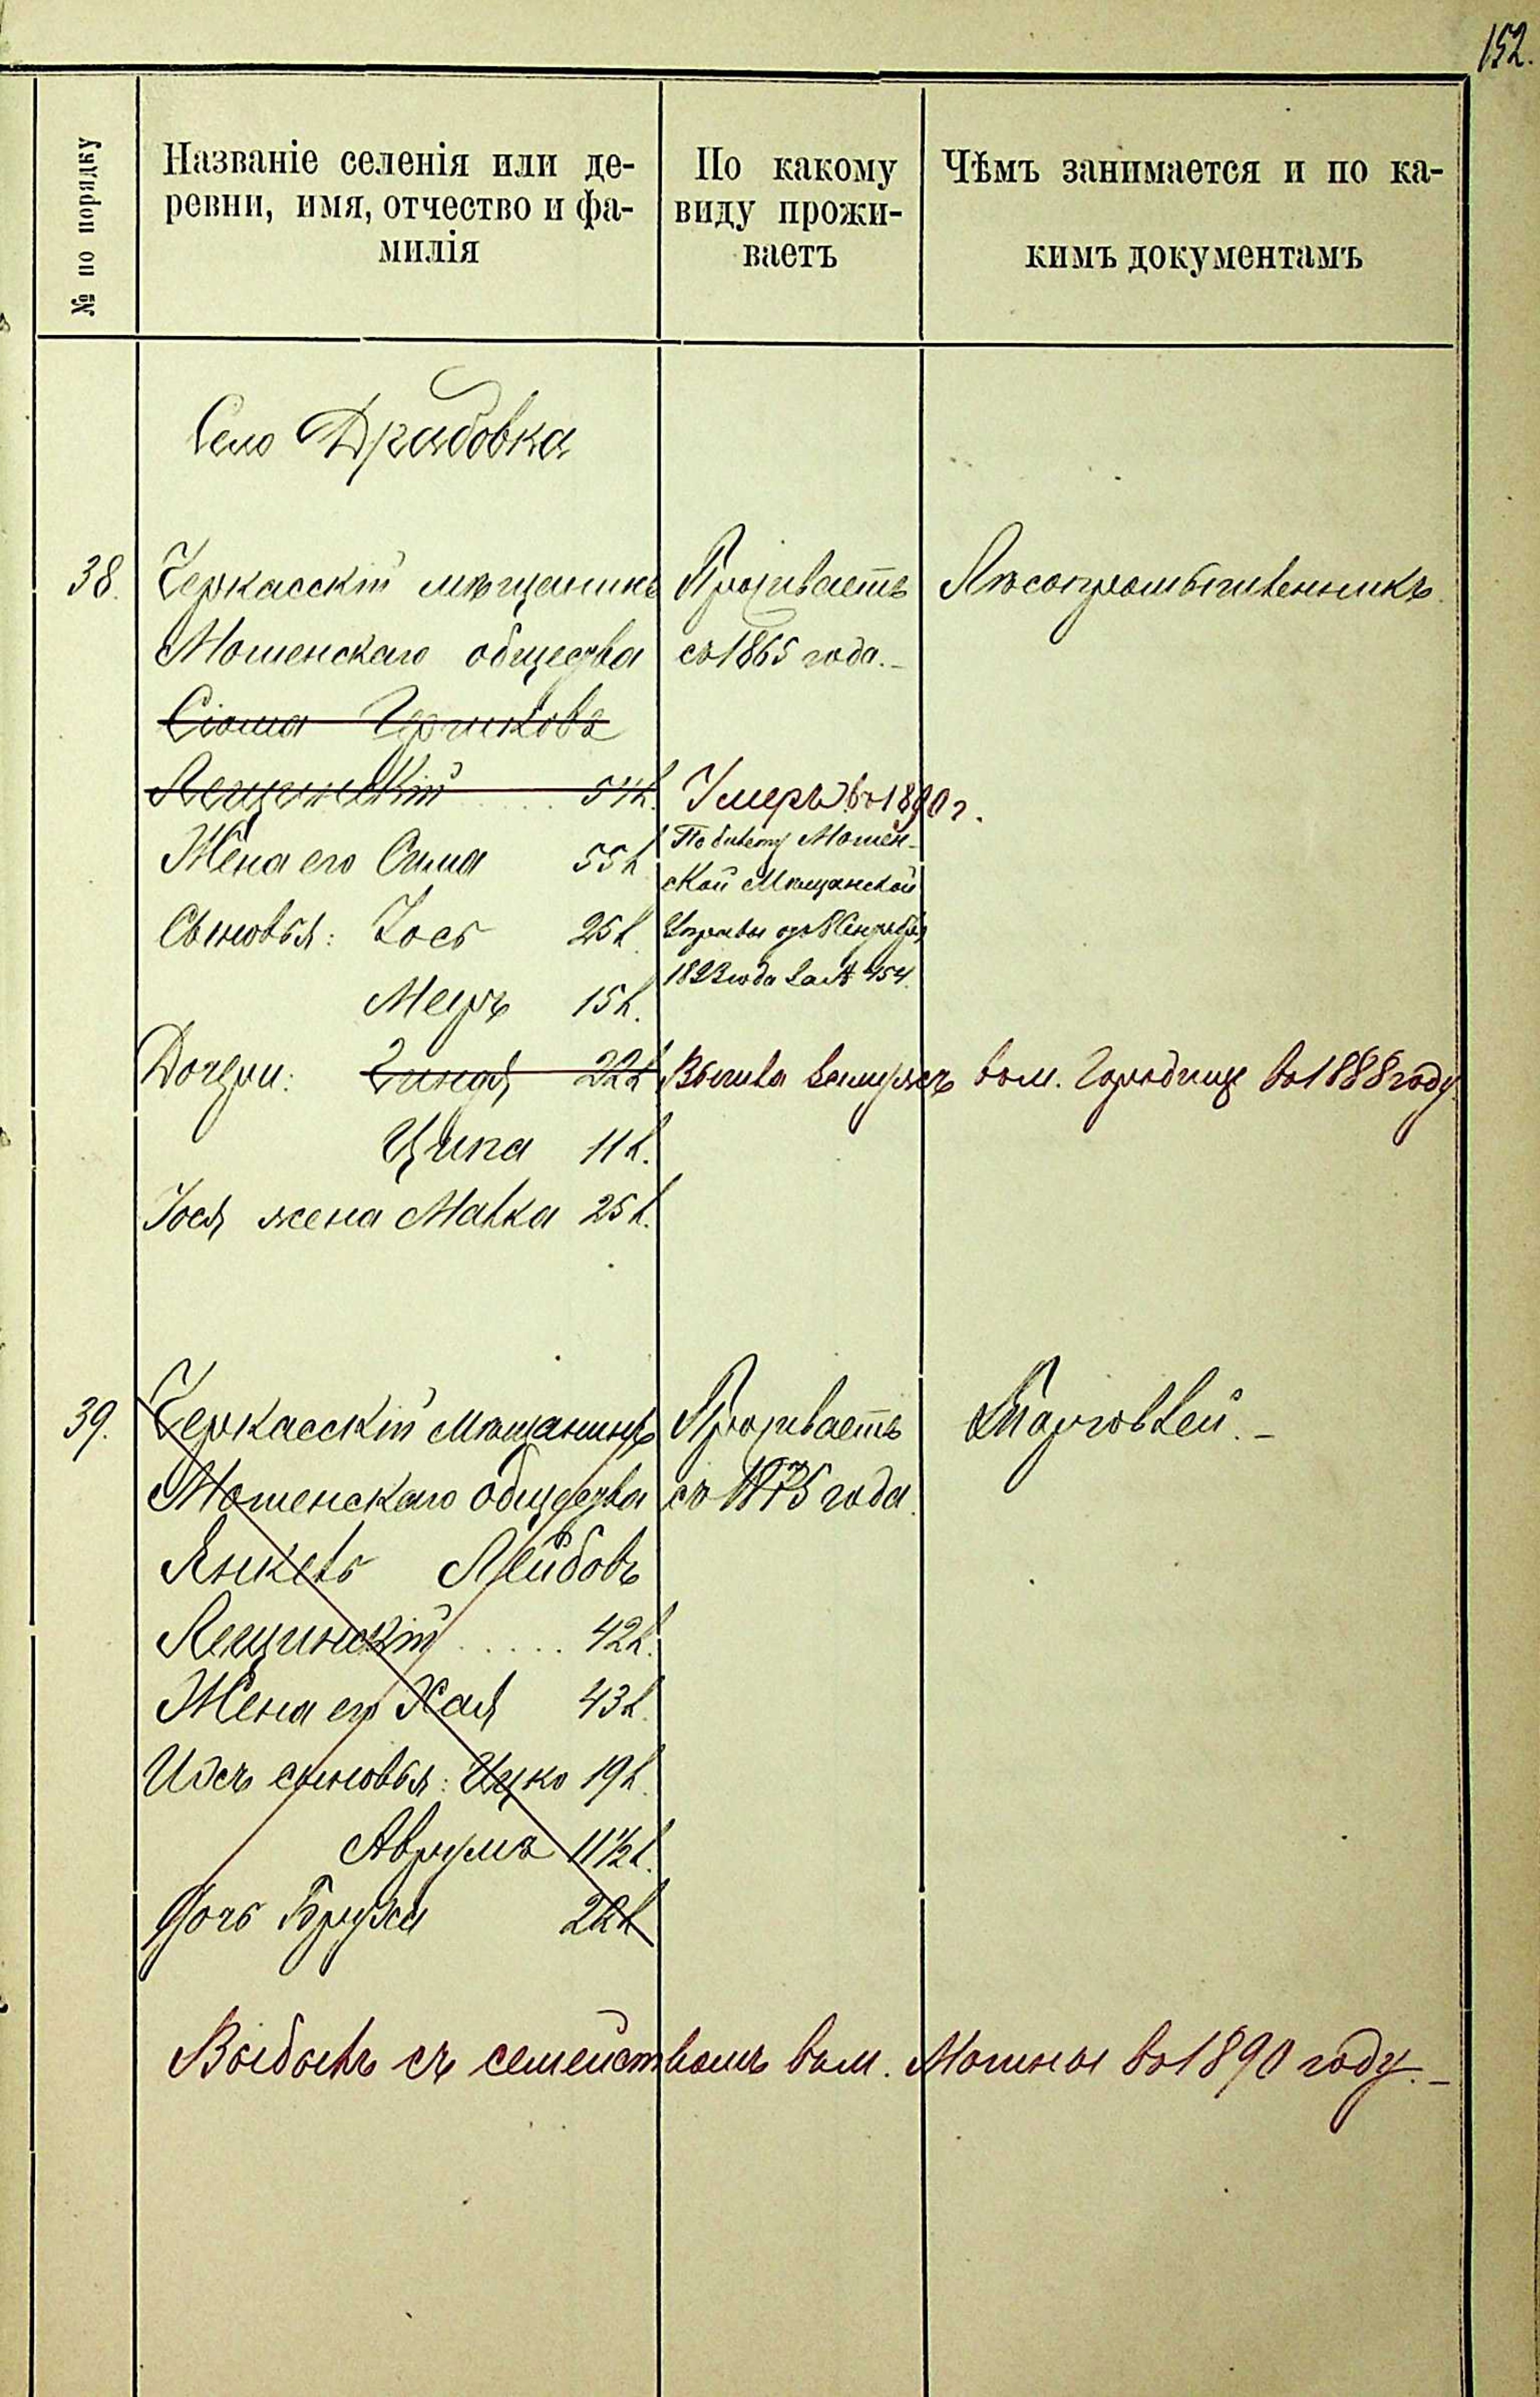 152.
№ по порядку
Названіе селенія или де-
ревни, имя, отчество и фа-
милія
По какому
виду прожи-
ваетъ
Чѣмъ занимается и по ка-
кимъ документамъ
Село Драбовка
38.
Черкасскій мѣщанинъ
Мошенскаго общества
Сіома Гершковъ
Лещинскій 54 л.
Жена его Сима 55 л.
Сыновья: Іось 25 л.
Мееръ 15 л.
Дочери: 22 л.
Ципа 11 л.
Іося жена Малка 25 л.
Проживаетъ
съ 1865 года.-
Умеръ въ 1890 г.
По билету Мошен-
ской Мѣщанской
Управы
года за № 454.
Вышла замужъ въ м. Городище въ 1888 году.
Лѣсопромышленникъ.
39.
Черкасскій Мѣщанинъ
Мошенскаго общества
Янкель Лейбовъ
Лещинскій ..... 42 л.
Жена его Хая 43 л.
Ихъ сыновья: Ицко 19 л.
Аврумъ 11½ л.
Дочь Бруха 22 л.
Проживаетъ
съ 1875 года.
Торговлей.-
Выбылъ съ семействомъ въ м. Мошны въ 1890 году.-